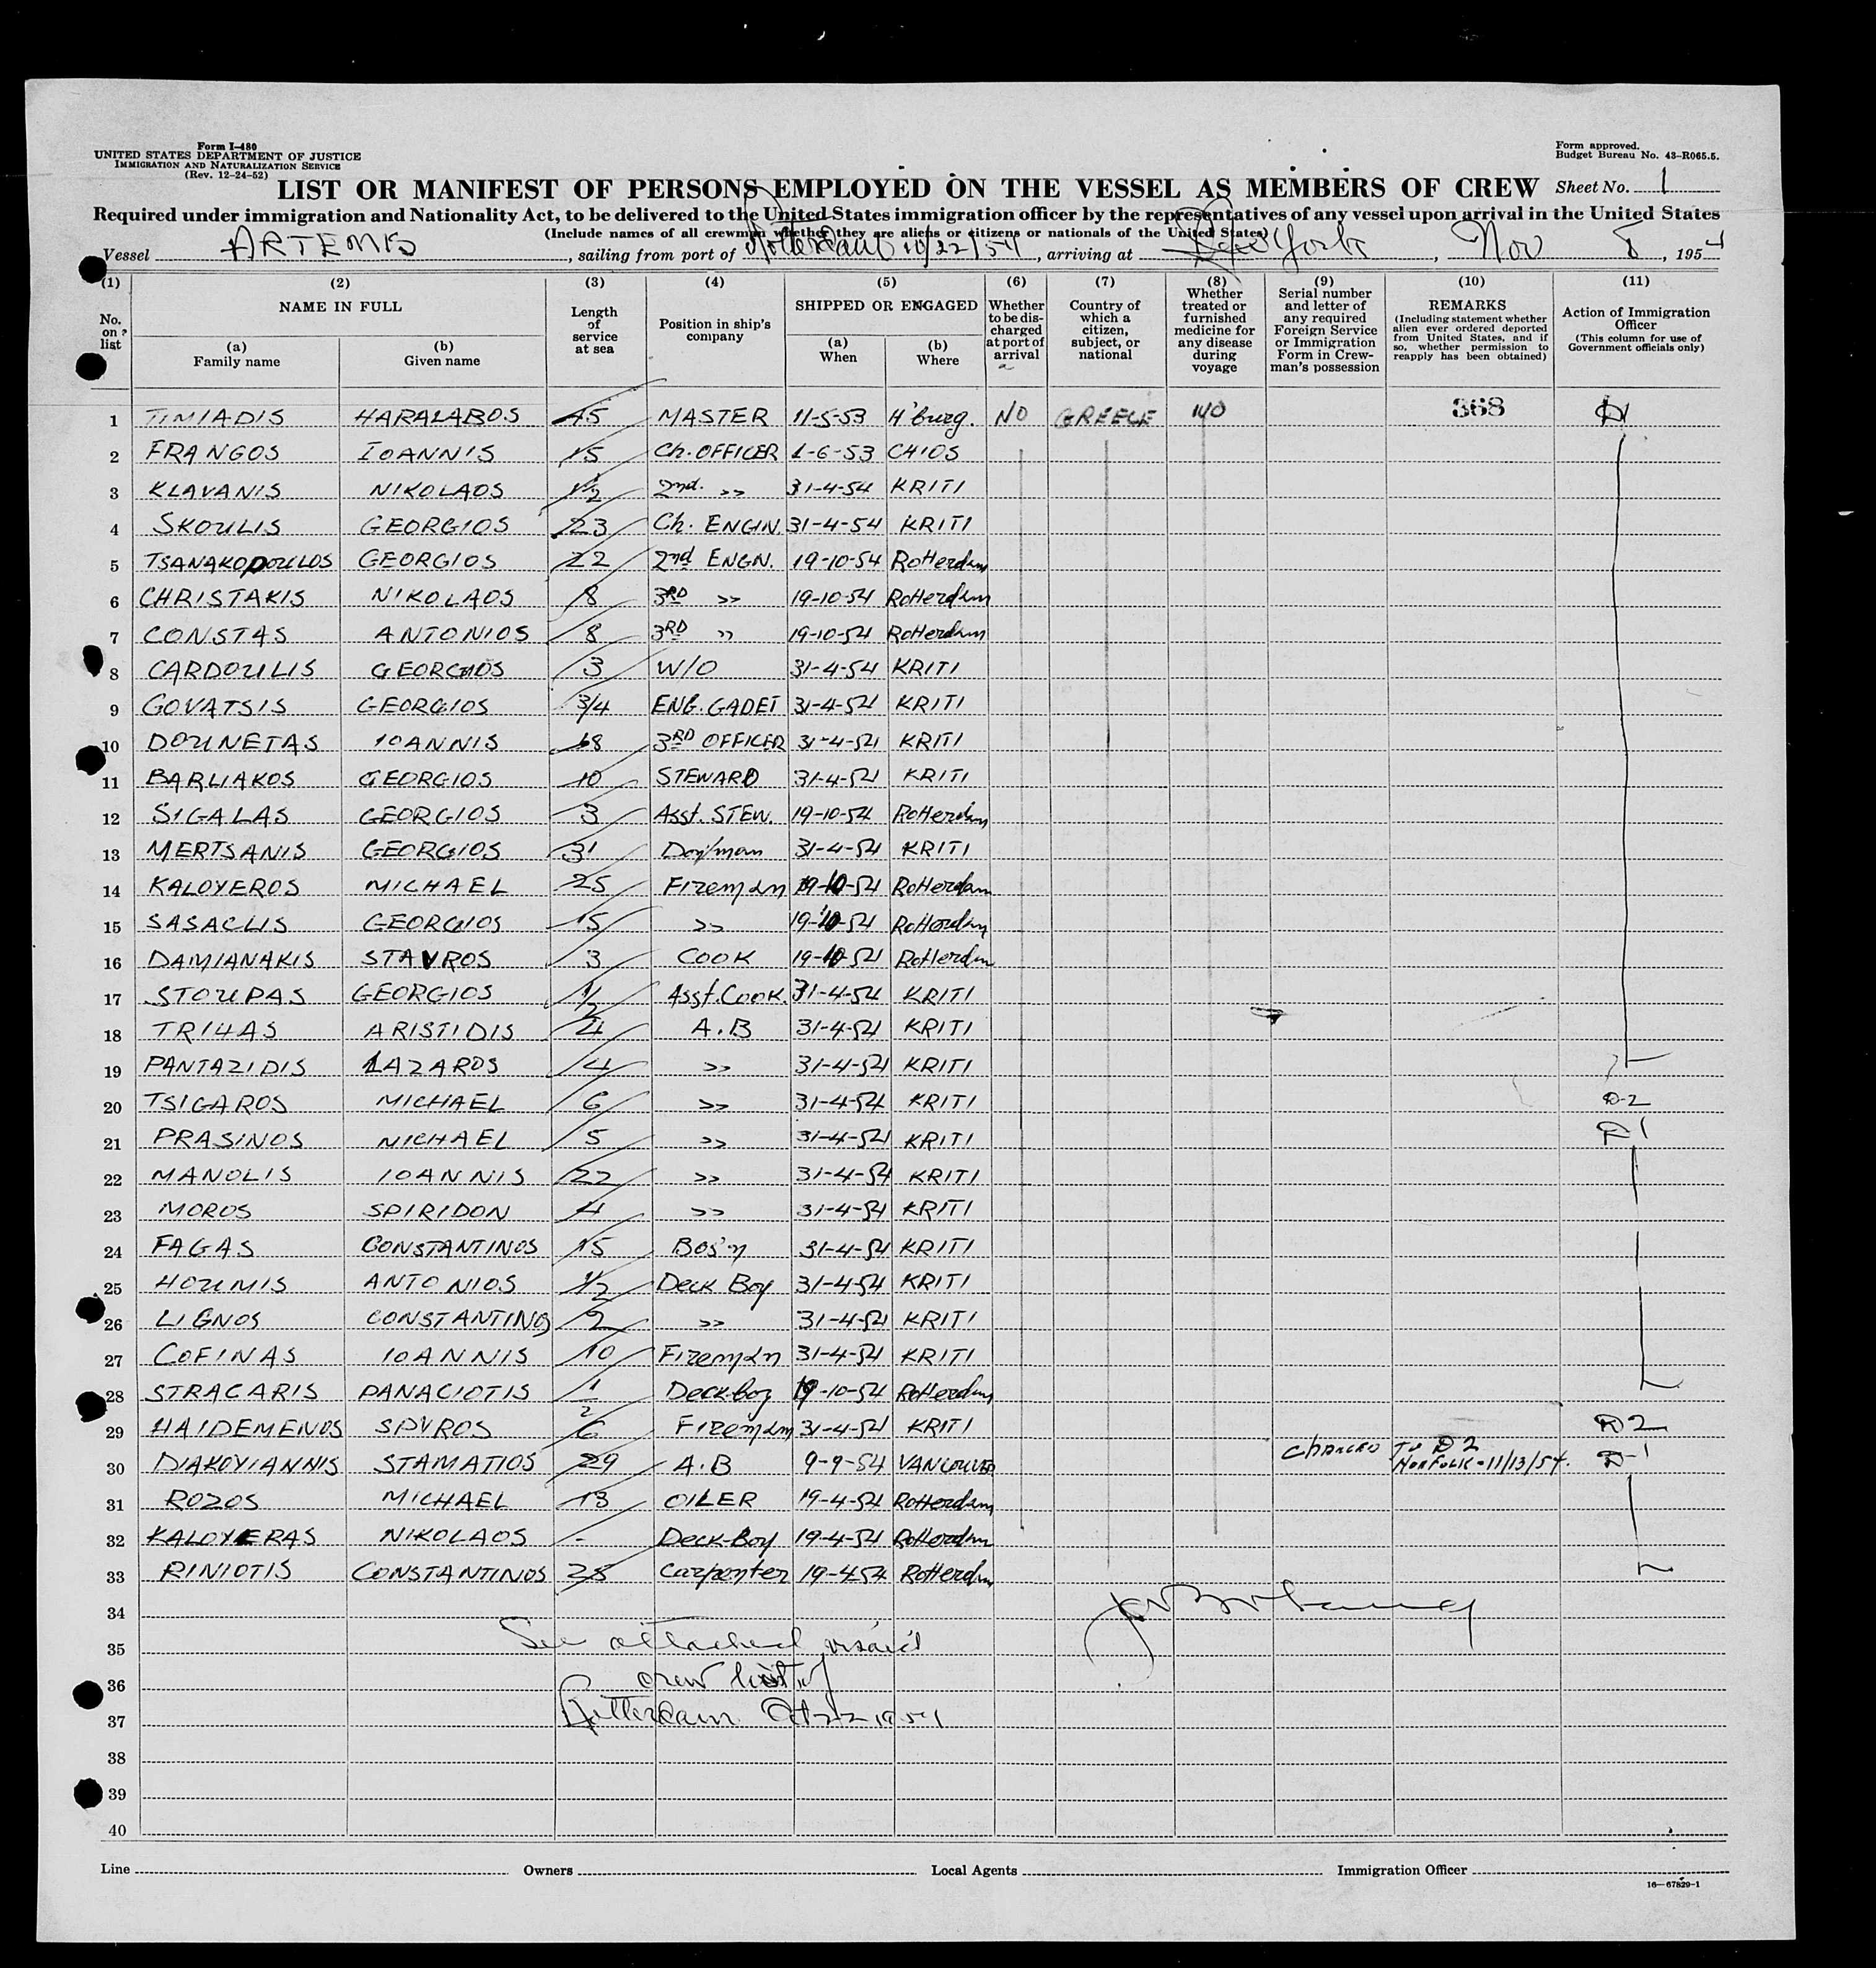 Form I-480
UNITED STATES DEPARTMENT OF JUSTICE
IMMIGRATION AND NATURALIZATION SERVICE
(Rev. 12-24-52)
Form approved.
Budget Bureau No. 43-R065.5.
LIST OR MANIFEST OF PERSONS EMPLOYED ON THE VESSEL AS MEMBERS OF CREW Sheet No. 1
Required under immigration and Nationality Act, to be delivered to the United States immigration officer by the representatives of any vessel upon arrival in the United States
(Include names of all crewmen whether they are aliens or citizens or nationals of the United States)
Vessel ARTEMIS, sailing from port of Rotterdam 10/22/54, arriving at New York, Nov 8, 1954
(1) (2) (3) (4) (5) (6) (7) (8) (9) (10) (11)
No. on list
NAME IN FULL
(a) Family name
(b) Given name
Length of service at sea
Position in ship's company
SHIPPED OR ENGAGED
(a) When
(b) Where
Whether to be discharged at port of arrival
Country of which a citizen, subject, or national
Whether treated or furnished medicine for any disease during voyage
Serial number and letter of any required Foreign Service or Immigration Form in Crewman's possession
REMARKS
(Including statement whether alien ever ordered deported from United States, and if so, whether permission to reapply has been obtained)
Action of Immigration Officer
(This column for use of Government officials only)
1 TIMIADIS HARALABOS 45 MASTER 11-5-53 H'burg. NO GREECE NO 368
2 FRANGOS IOANNIS 15 Ch. OFFICER 1-6-53 CHIOS
3 KLAVANIS NIKOLAOS 1½ 2nd. >> 31-4-54 KRITI
4 SKOULIS GEORGIOS 23 Ch. ENGIN. 31-4-54 KRITI
5 TSANAKOPOULOS GEORGIOS 22 2nd ENGN. 19-10-54 Rotterdam
6 CHRISTAKIS NIKOLAOS 8 3RD >> 19-10-54 Rotterdam
7 CONSTAS ANTONIOS 8 3RD >> 19-10-54 Rotterdam
8 CARDOULIS GEORGIOS 3 W/O 31-4-54 KRITI
9 GOVATSIS GEORGIOS 3/4 ENG. CADET 31-4-54 KRITI
10 DOUNETAS IOANNIS 18 3RD OFFICER 31-4-54 KRITI
11 BARLIAKOS GEORGIOS 10 STEWARD 31-4-54 KRITI
12 SIGALAS GEORGIOS 3 Asst. STEW. 19-10-54 Rotterdam
13 MERTSANIS GEORGIOS 31 31-4-54 KRITI
14 KALOYEROS MICHAEL 25 Fireman 19-10-54 Rotterdam
15 SASACLIS GEORGIOS 15 >> 19-10-54 Rotterdam
16 DAMIANAKIS STAVROS 3 COOK 19-10-54 Rotterdam
17 STOUPAS GEORGIOS 1/2 Asst. Cook. 31-4-54 KRITI
18 TRIHAS ARISTIDIS 4 A.B 31-4-54 KRITI
19 PANTAZIDIS LAZAROS 4 >> 31-4-54 KRITI
20 TSIGAROS MICHAEL 6 >> 31-4-54 KRITI D-2
21 PRASINOS MICHAEL 5 >> 31-4-54 KRITI D1
22 MANOLIS IOANNIS 22 >> 31-4-54 KRITI
23 MOROS SPIRIDON 4 >> 31-4-54 KRITI
24 FAGAS CONSTANTINOS 15 Bos'n 31-4-54 KRITI
25 HOUMIS ANTONIOS 1/2 Deck Boy 31-4-54 KRITI
26 LIGNOS CONSTANTINOS 2 >> 31-4-54 KRITI
27 COFINAS IOANNIS 10 Fireman 31-4-54 KRITI
28 STRACARIS PANACIOTIS 1/2 Deck-boy 19-10-54 Rotterdam
29 HAIDEMENOS SPYROS 6 Fireman 31-4-54 KRITI D2
30 DIAKOYIANNIS STAMATIOS 29 A.B 9-9-54 VANCOUVER CHANGED TO D2 NORFOLK-11/13/54. D-1
31 ROZOS MICHAEL 13 OILER 19-4-54 Rotterdam
32 KALOYERAS NIKOLAOS - Deck-Boy 19-4-54 Rotterdam
33 RINIOTIS CONSTANTINOS 25 Carpenter 19-4-54 Rotterdam
34
35 See attached visaed
36 crew list of
37 Rotterdam Oct 22 1954
38
39
40
Line Owners Local Agents Immigration Officer
16—67829-1